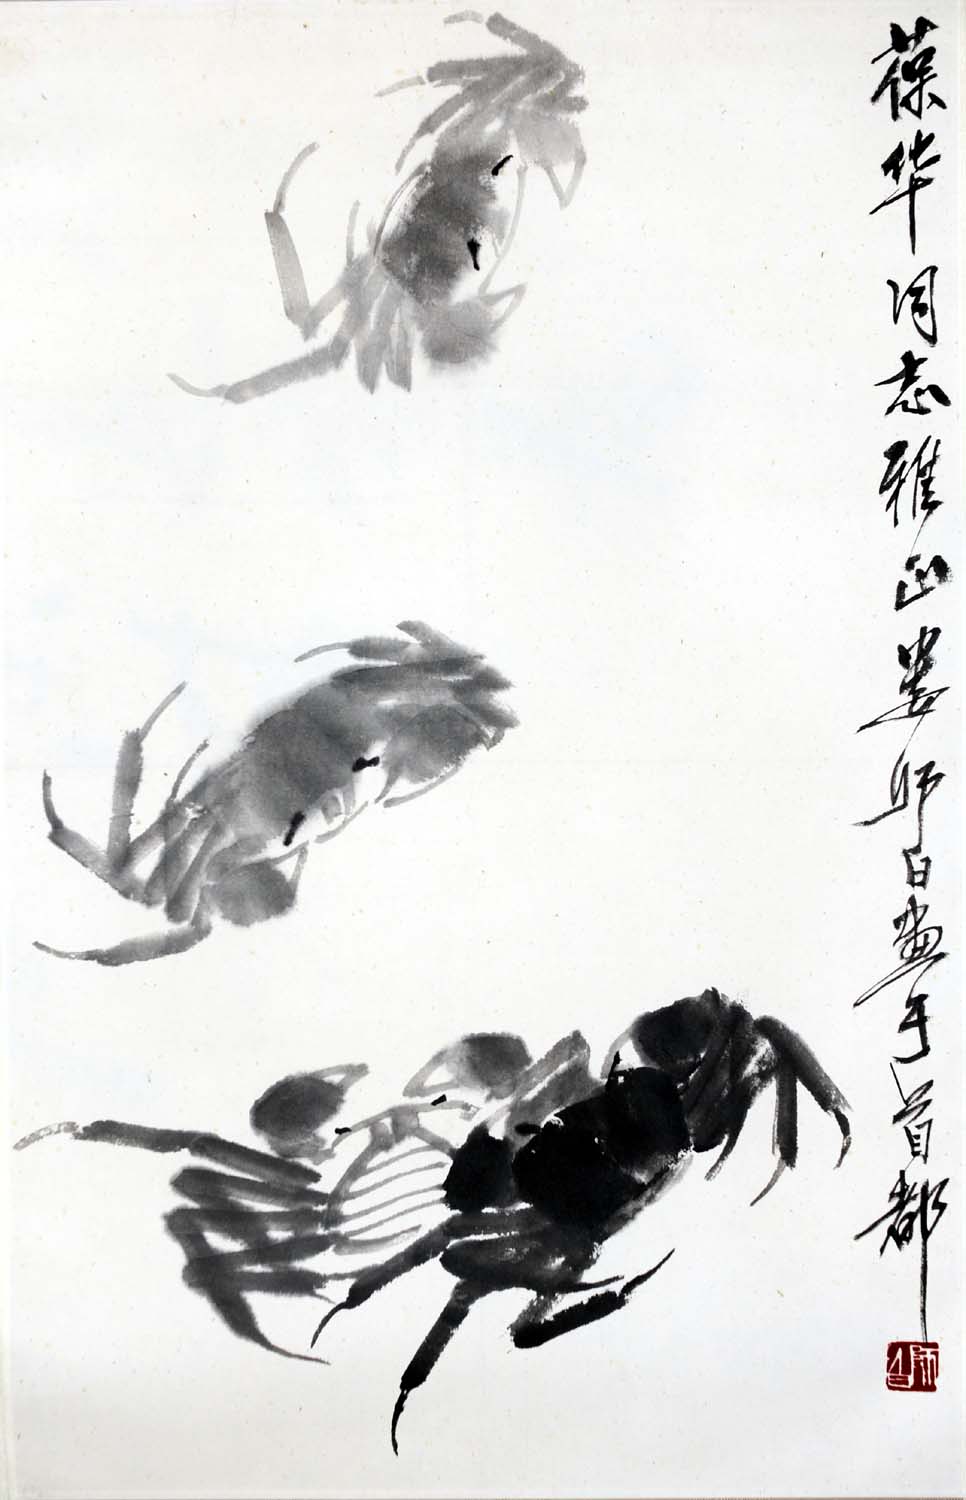 葆华同志雅正娄师白画于首都
师白